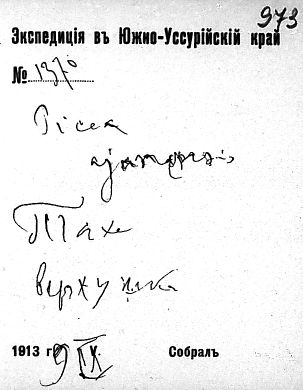 973
Экспедиція въ Южно-Уссурійскій край
№ 1370
Picea
ajanensis
верхушка
1913 г. 9 IX
Собралъ